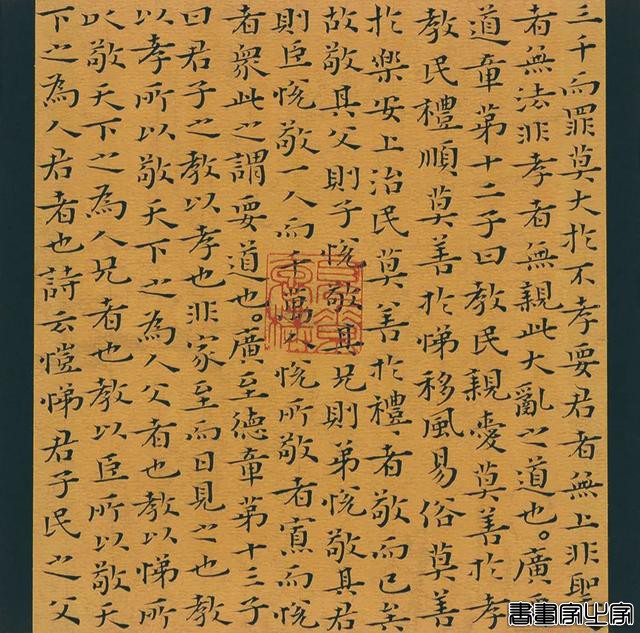 三千而罪莫大於不孝要君者無上非聖
者無法非孝者無親此大亂之道也。廣要
道章第十二子曰教民親愛莫善於孝
教民禮順莫善於悌移風易俗莫善
於樂安上治民莫善於禮、者敬而已矣
故敬其父則子悅敬其兄則弟悅敬其君
則臣悅敬一人而千萬人悅所敬者寡而悅
者衆此之謂要道也。廣至德章第十三子
曰君子之教以孝也非家至而日見之也教
以孝所以敬天下之為人父者也教以悌所
以敬天下之為人兄者也教以臣所以敬天
下之為人君者也詩云愷悌君子民之父
書畫家字